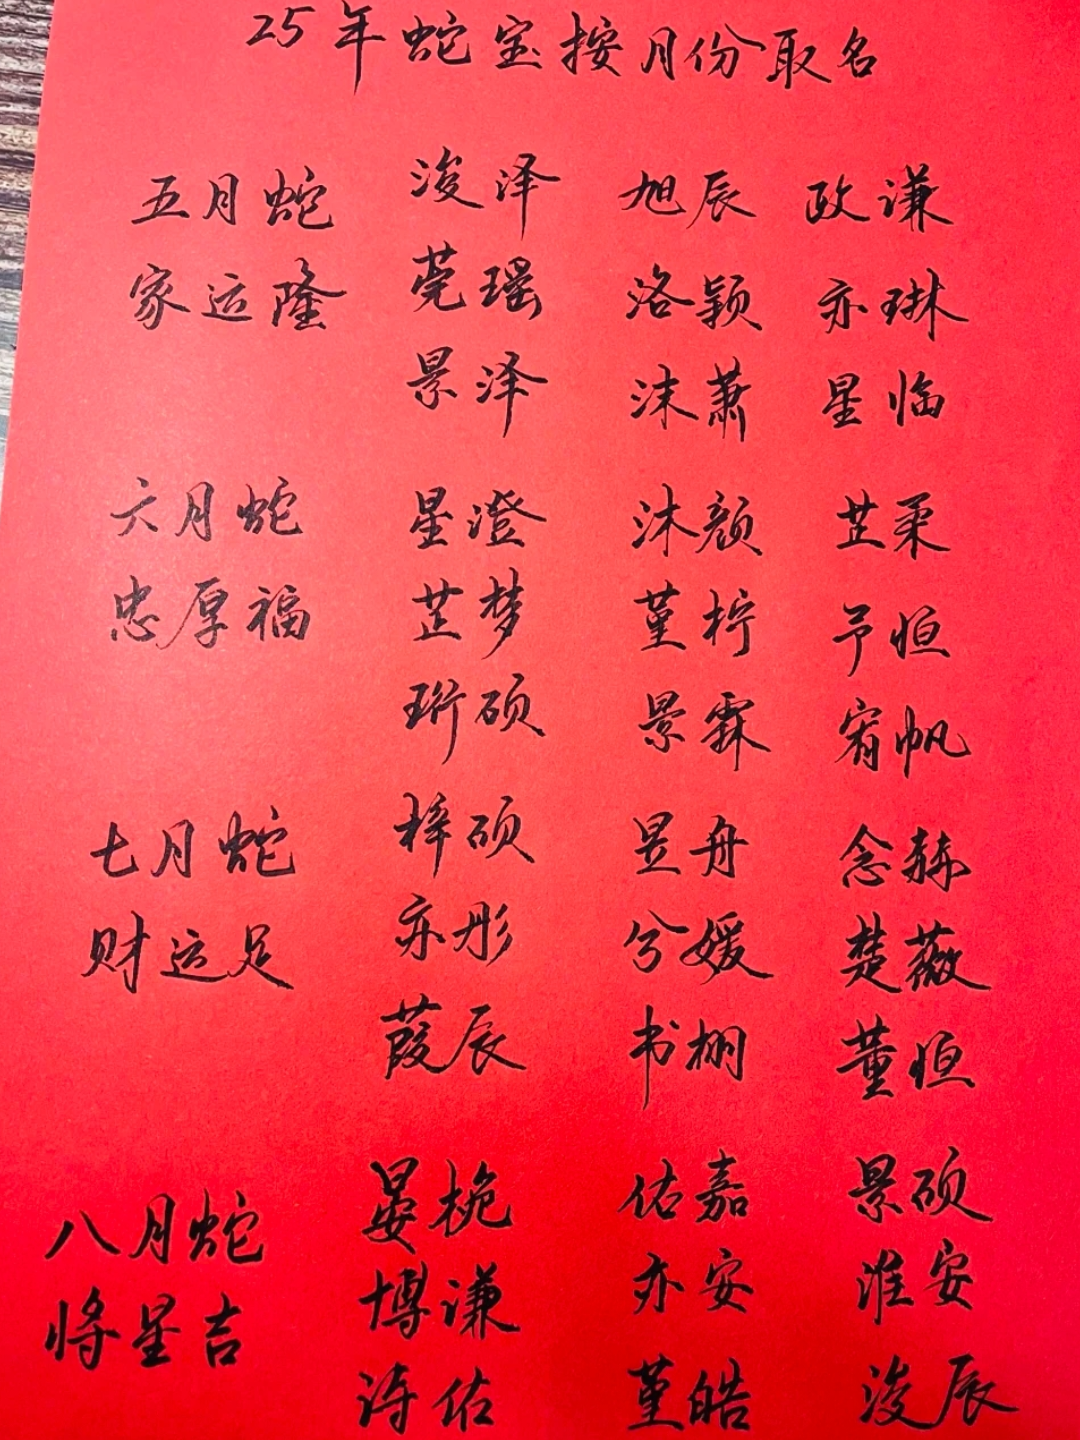 25年蛇宝按月份取名
五月蛇 浚泽 旭辰 政谦
家运隆 莞瑶 洛颖 亦琳
景泽 沫萧 星临
六月蛇 星澄 沐颜 芷柔
忠厚福 芷梦 堇柠 予恒
珩硕 景霖 宥帆
七月蛇 梓硕 昱舟 念赫
财运足 亦彤 兮媛 楚薇
葭辰 书栩 董恒
八月蛇 晏桅 佑嘉 景硕
将星吉 博谦 亦安 淮安
诗佑 堇皓 浚辰